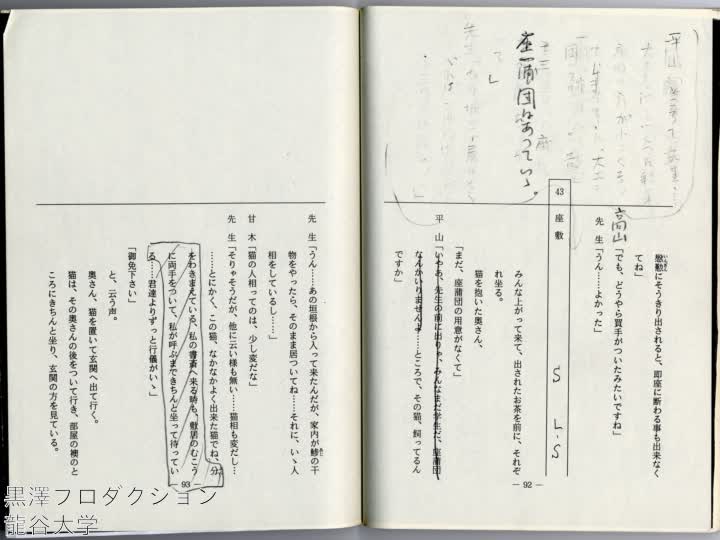 座蒲団はあっていゝ。
慇懃にそうきり出されると、即座に断わる事も出来なく
てね」
高山
「でも、どうやら買手がついたみたいですね」
先生「うん……よかった」
43 座敷 S L.S
みんな上がって来て、出されたお茶を前に、それぞ
れ坐る。
猫を抱いた奥さん、
「まだ、座蒲団の用意がなくて」
平山「いやあ、先生の前に出りゃ、みんなまだ学生だ、座蒲団
なんかいりませんよ……ところで、その猫、飼ってるん
ですか」
― 92 ―
先生「うん……あの垣根から入って来たんだが、家内が鯵の干
物をやったら、そのまま居ついてね……それに、いゝ人
相をしているし……」
甘木「猫の人相ってのは、少し変だな」
先生「そりゃそうだが、他に云い様も無い……猫相も変だし…
……とにかく、この猫、なかなかよく出来た猫でね、分
をわきまえている、私の書斎へ来る時も、敷居のむこう
に両手をついて、私が呼ぶまできちんと坐って待ってい
る……君達よりずっと行儀がいゝ」
「御免下さい」
と、云う声。
奥さん、猫を置いて玄関へ出て行く。
猫は、その奥さんの後をついて行き、部屋の襖のと
ころにきちんと坐り、玄関の方を見ている。
― 93 ―
黒澤プロダクション
龍谷大学